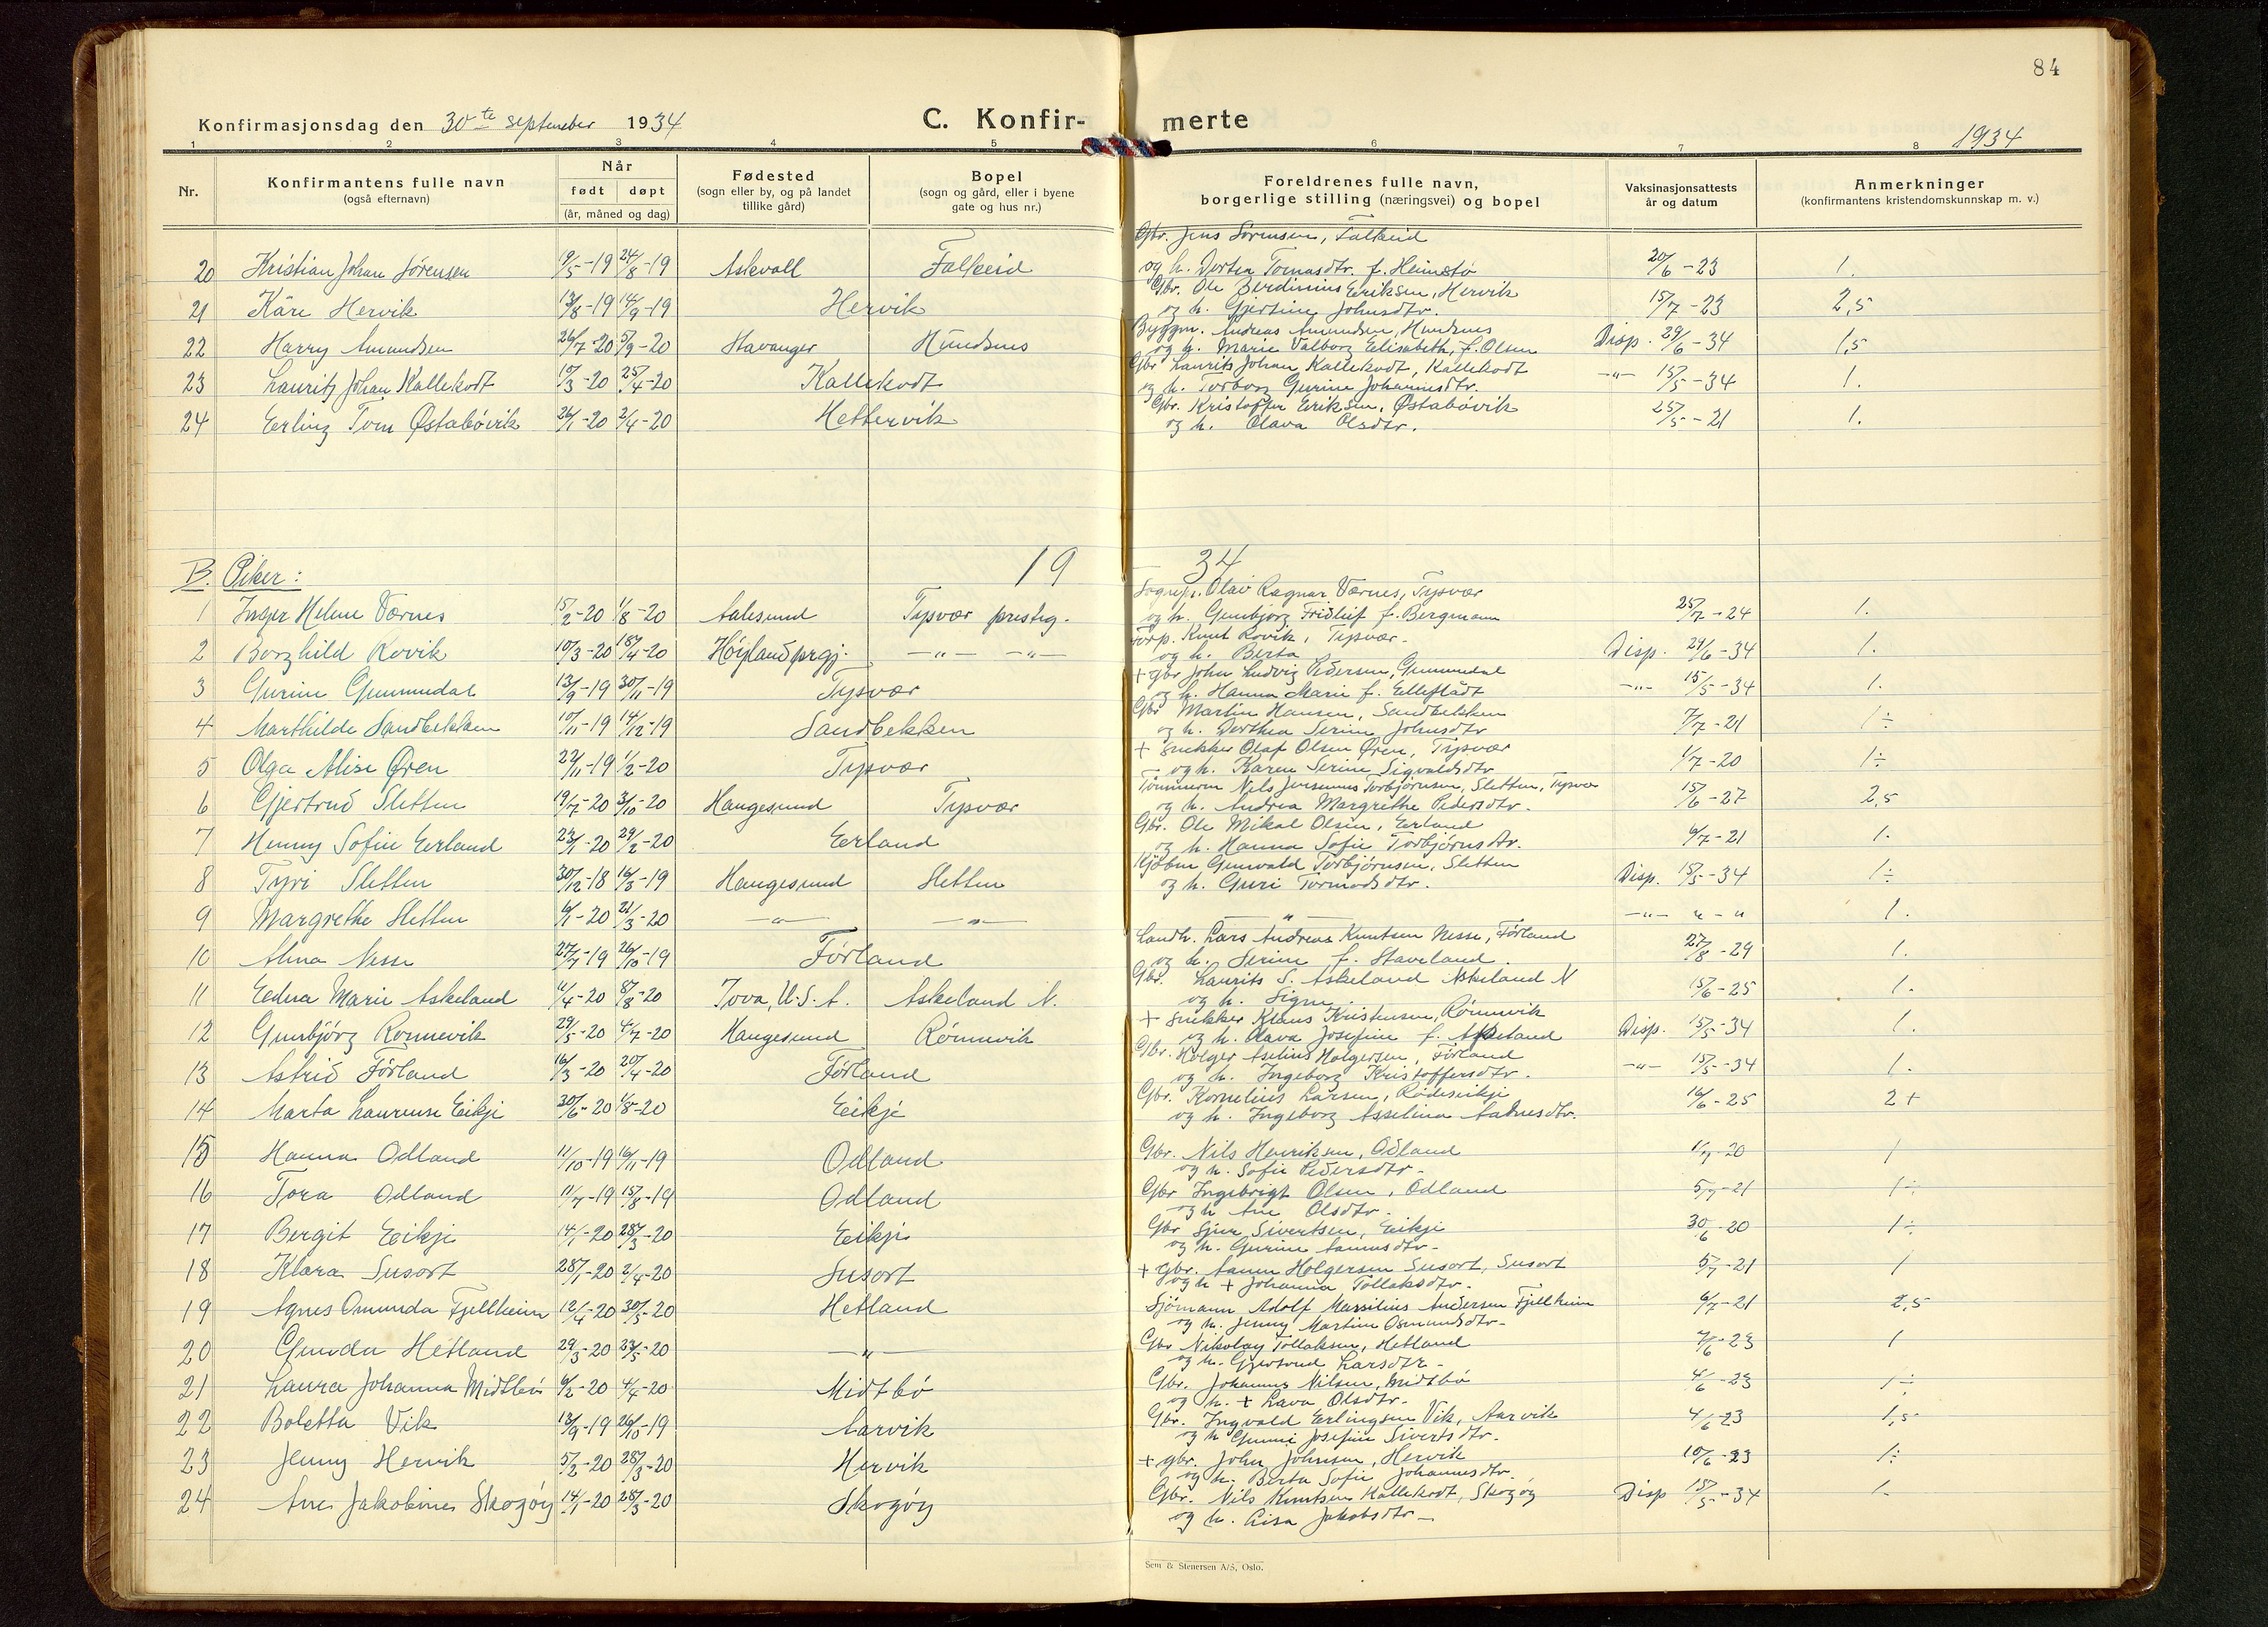 84
Konfirmasjonsdag den 30te september 1934 C. Konfir- merte 1934
1 2 3 4 5 6 7 8
Nr. Konfirmantens fulle navn (også efternavn) Når født døpt (år, måned og dag) Fødested (sogn eller by, og på landet tillike gård) Bopel (sogn og gård, eller i byene gate og hus nr.) Foreldrenes fulle navn, borgerlige stilling (næringsvei) og bopel Vaksinasjonsattests år og datum Anmerkninger (konfirmantens kristendomskunnskap m. v.)
Gbr. Jens Sørensen, Falkeid
20 Kristian Johan Sørensen 19/5-19 24/8-19 Askvoll Falkeid og h. Dortea Tomasdtr. f. Heimstø 20/6-23 1.
Gbr. Ole Berdinius Eriksen, Hervik
21 Kåre Hervik 13/8-19 14/9-19 Hervik og h. Gjertine Johnsdtr. 15/7-23 2,5
Byggm. Andreas Amundsen, Hundsnes
22 Harry Amundsen 26/7-20 5/9-20 Stavanger Hundsnes og h. Marie Valborg Elisabeth, f. Olsen Disp. 29/6-34 1,5
Gbr Laurits Johan Kallekodt, Kallekodt
23 Lauritz Johan Kallekodt 10/3-20 25/4-20 Kallekodt og h. Torborg Gurine Johannesdtr. -"- 15/5-34 1.
Gbr. Kristoffer Eriksen, Østabøvik
24 Erling Tom Østabøvik 26/1-20 2/4-20 Hettervik og h. Olava Olsdtr. 25/5-21 1.
B. Piker: 19 34
Sognepr. Olav Ragnar Værnes, Tysvær
1 Inger Helene Værnes 15/2-20 1/8-20 Aalesund Tysvær prestg. og h. Gunbjørg Fridleif f. Bergmann 25/7-24 1.
Forp. Knut Rovik, Tysvær.
2 Borghild Rovik 10/3-20 18/4-20 Høyland prgj. -"- -"- og h. Berta Disp. 29/6-34 1.
+ gbr John Ludvig Pedersen, Gummedal
3 Gurine Gummedal 13/9-19 30/11-19 Tysvær og h. Hanna Marie f. Elleflådt -"- 15/5-34 1.
Gbr Martin Hansen, Sandbekken
4 Marthilde Sandbekken 10/11-19 14/12-19 Sandbekken og h. Dorthea Serine Johnsdtr 7/7-21 1÷
+ snekker Olaf Olsen Øren, Tysvær
5 Olga Alise Øren 22/11-19 1/2-20 Tysvær og h. Karen Serine Sigvaldsdtr 1/7-20 1÷
Tømmerm Nils Jensenius Torbjørnsen, Sletten, Tysvær
6 Gjertrud Sletten 19/7-20 3/10-20 Haugesund Tysvær og h. Andrea Margrethe Pedersdtr. 15/6-27 2,5
Gbr. Ole Mikal Olsen, Eerland
7 Henny Sofie Eerland 23/1-20 29/2-20 Eerland og h. Hanna Sofie Torbjørnsdtr. 6/7-21 1.
Kjøbm Gunvald Torbjørnsen, Sletten
8 Tyri Sletten 30/12-18 16/3-19 Haugesund Sletten og h. Guri Tormodsdtr. Disp. 15/5-34 1÷
9 Margrethe Sletten 6/1-20 21/3-20 -"- -"- -"- -"- "-" 1.
Landh. Lars Andreas Knutsen Nesse, Førland
10 Alma Nesse 27/7-19 26/10-19 Førland og h. Serine f. Staveland. 27/8-29 1.
Gbr. Laurits S. Askeland Askeland N
11 Edna Marie Askeland 11/4-20 8/8-20 Iova, U.S.A. Askeland N. og h. Signe. 15/6-25 1.
+ snekker Klaus Kristensen, Rønnevik
12 Gunbjørg Rønnevik 29/5-20 4/7-20 Haugesund Rønnevik og h. Olava Josefine f. Askeland Disp. 15/5-34 1.
Gbr. Holger Aselius Holgersen, Førland
13 Astrid Førland 16/3-20 20/4-20 Førland og h. Ingeborg Kristoffersdtr. -"- 15/5-34 1.
Gbr. Kornelius Larsen,
14 Marta Laurense Eikje 30/6-20 1/8-20 Eikje og h. Ingeborg Asselina Aadnesdtr. 16/6-25 2+
15 Hanna Odland 11/10-19 16/11-19 Odland Gbr. Nils Henriksen, Odland 1/7-20 1
og h. Sofie Pedersdtr.
16 Tora Odland 11/7-19 15/8-19 Odland Gbr Ingebrigt Olsen, Odland 5/7-21 1÷
og h Ane Olsdtr.
17 Bergit Eikje 14/1-20 28/3-20 Eikje Gbr Sjur Sivertsen, Eikje 30/6-20 1÷
og h. Gurine Aamnsdtr.
18 Klara Susort 28/1-20 2/4-20 Susort + Gbr. Aamn Holgersen Susort, Susort 5/7-21 1
og h + Johanna Tollaksdtr.
19 Agnes Omunda Fjellheim 12/4-20 30/5-20 Hetland Sjømann Adolf Massilius Andersen Fjellheim 6/7-21 2,5
og h. Jenny Martine Osmundsdtr.
20 Gunda Hetland 29/3-20 23/5-20 -"- Gbr Nikolay Tollaksen, Hetland 7/6-23 1
og h. Gjertrud Larsdtr.
21 Laura Johanna Midtbø 6/2-20 4/4-20 Midtbø Gbr. Johannes Nilsen, Midtbø 4/6-23 1÷
og h. + Lava Olsdtr.
22 Boletta Vik 13/9-19 26/10-19 Aarvik Gbr. Ingvald Erlingsen Vik, Aarvik 4/6-23 1,5
og h Gunni Josefine Sivertsdtr.
23 Jenny Hervik 5/2-20 28/3-20 Hervik + gbr. John Johnsen, Hervik 10/6-23 1÷
og h. Berta Sofie Johannesdtr.
24 Ane Jakobine Skogøy 14/1-20 28/3-20 Skogøy Gbr. Nils Knutsen Kallekodt, Skogøy Disp 15/5-34 1.
og h. Lisa Jakobsdtr.
Sem & Stenersen A/S, Oslo.